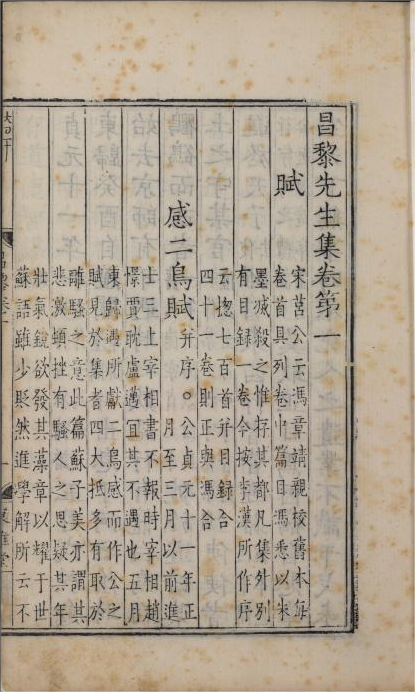 昌黎先生集卷第一
賦
宋莒公云馮章靖親校舊本每
卷首具列卷中篇目馮悉以朱
墨滅殺之惟存其都凡集外別
有目録一卷今按李漢所作序
云揔七百首并目録合
四十一卷則正與馮合
感二鳥賦
并序○公貞元十一年正
月至三月以前進
士三上宰相書不報時宰相趙
憬賈耽盧邁宜其不遇也五月
東歸遇所獻二鳥感而作公之
賦見於集者四大抵多有取於
離騷之意此篇蘇子美亦謂其
悲激頓挫有騷人之思疑其年
壯氣銳欲發其藻章以耀于世
蘇語雖少貶然進學解所云不